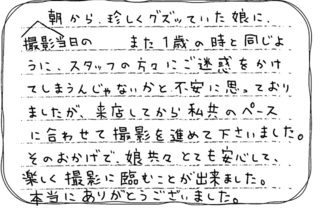 朝から、珍しくグズッていた娘に、
撮影当日の　また1歳の時と同じよ
うに、スタッフの方々にご迷惑をかけ
てしまうんじゃないかと不安に思っており
ましたが、来店してから私共のペース
に合わせて撮影を進めて下さいました。
そのおかげで、娘共々とても安心して、
楽しく撮影に臨むことが出来ました。
本当にありがとうございました。